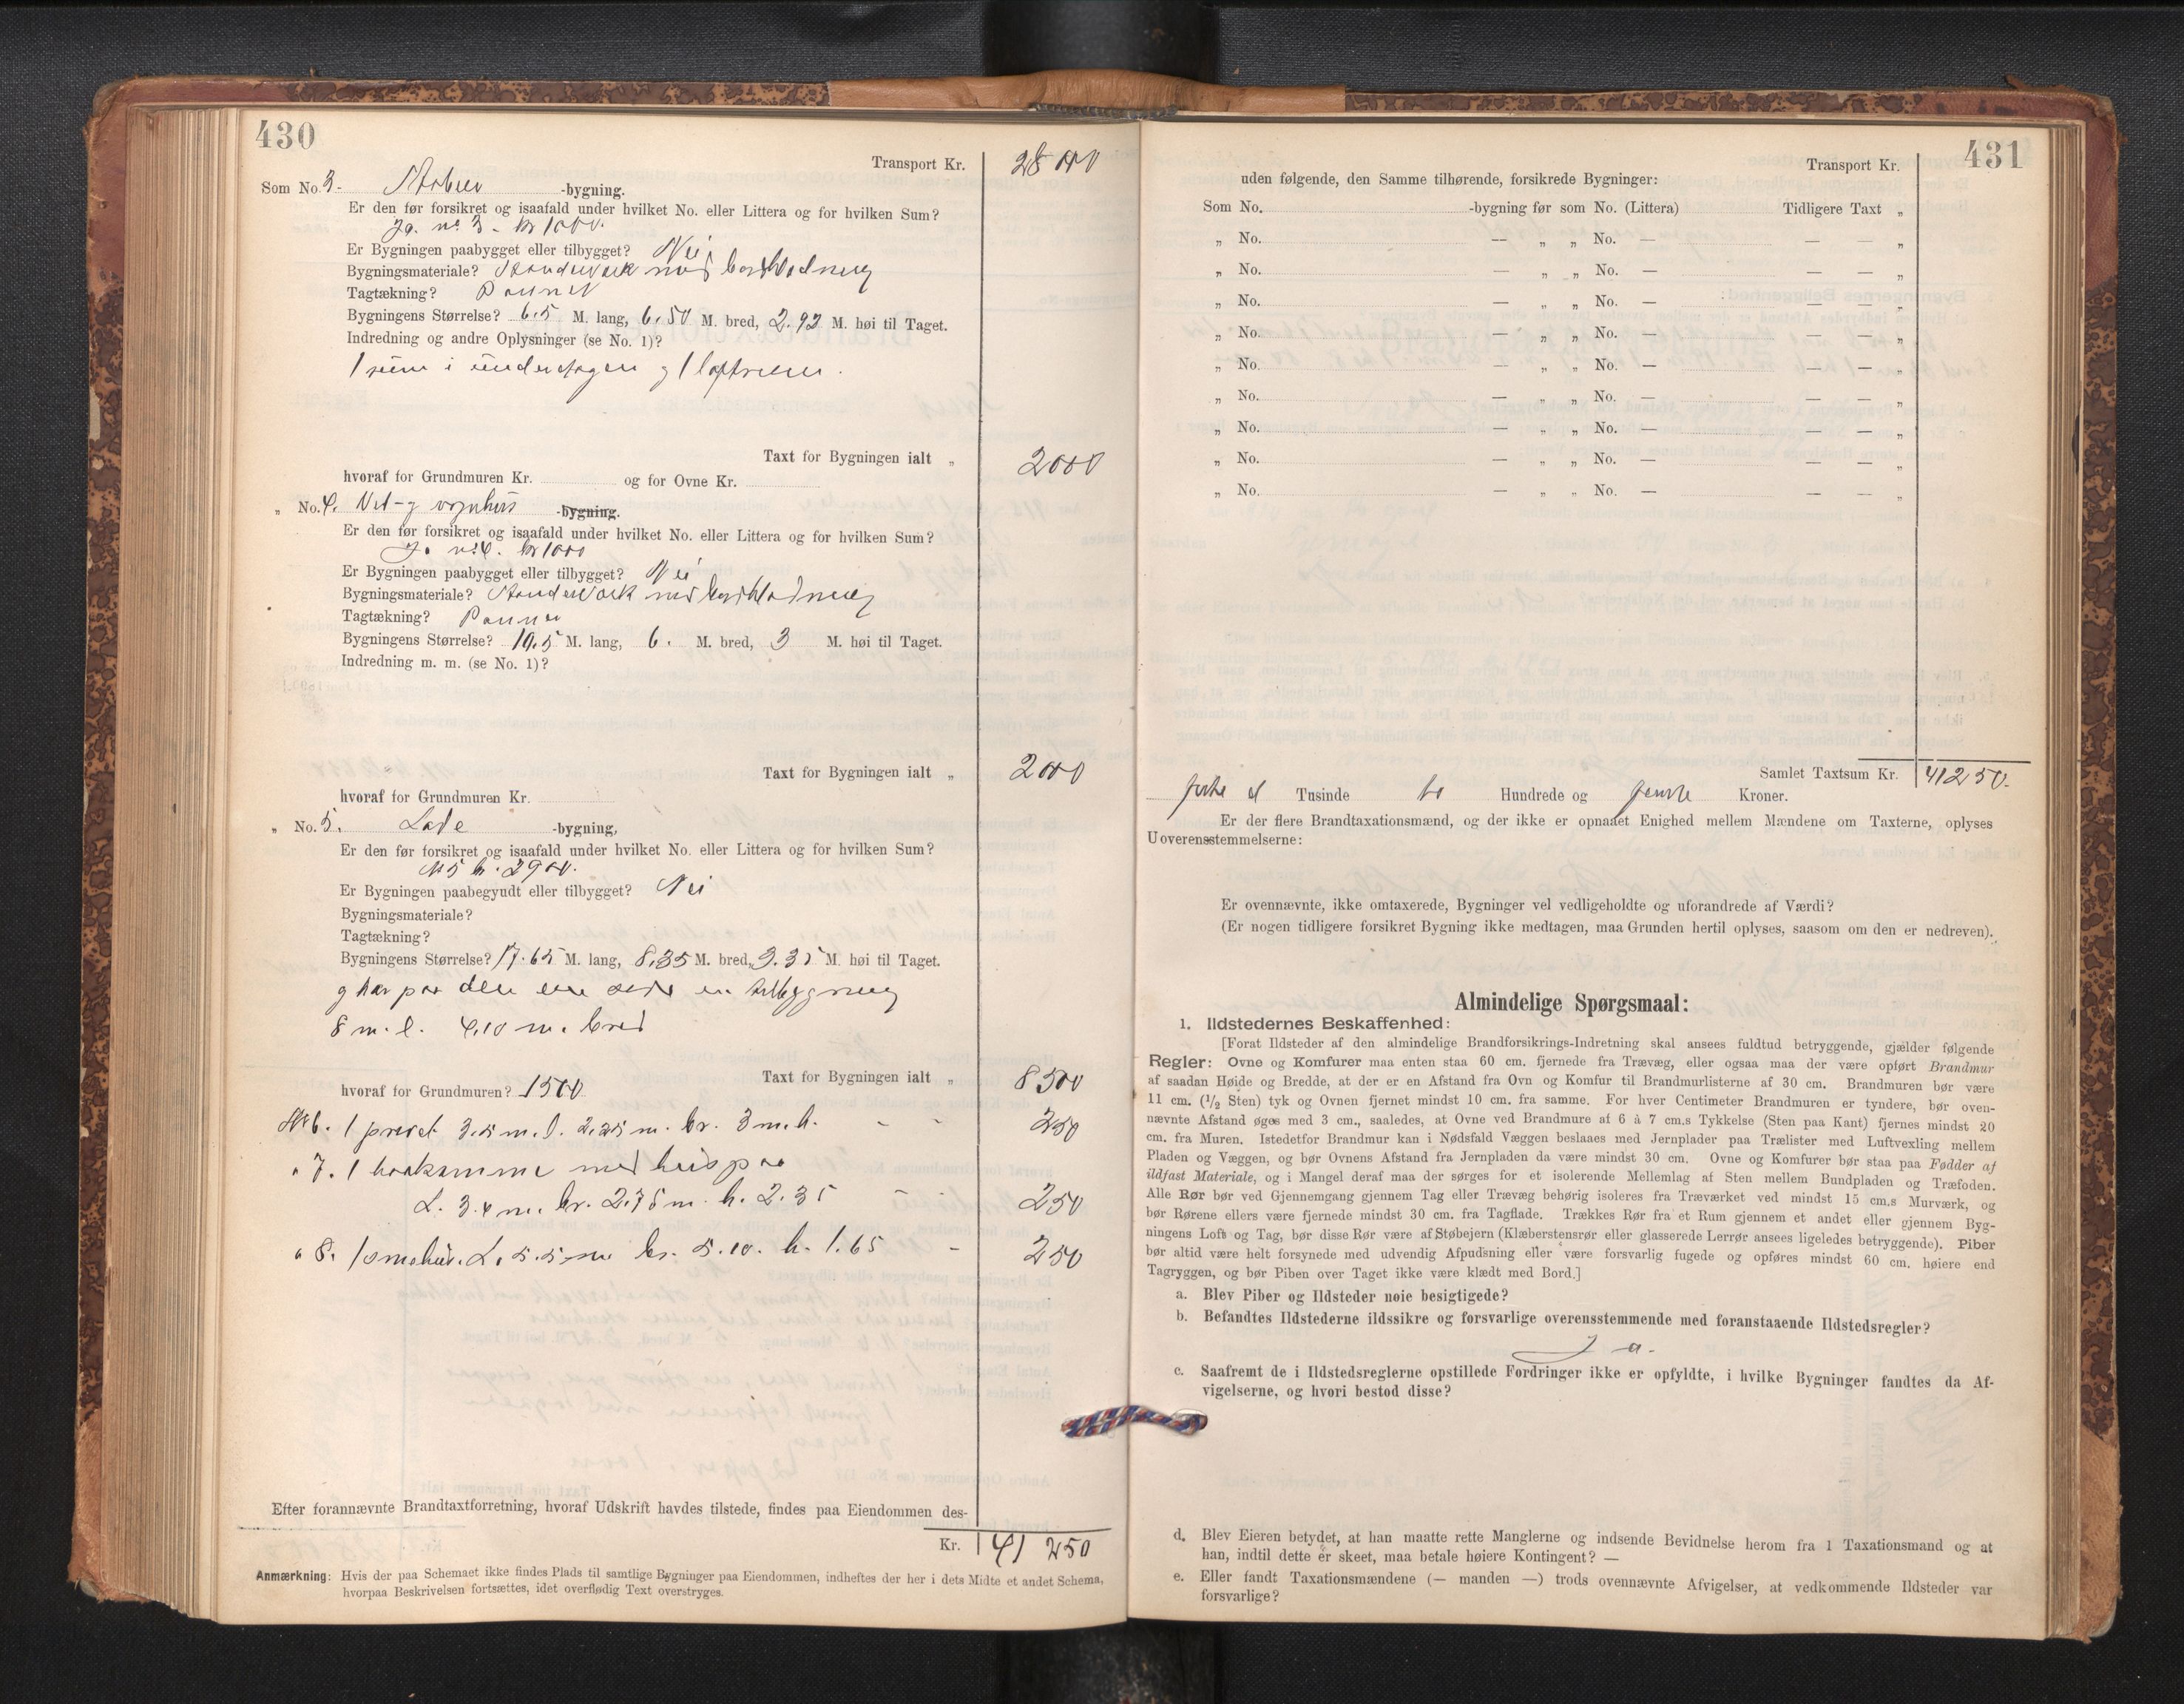 430
Transport Kr. 28000
Som No. 3. Stabur -bygning.
Er den før forsikret og isaafald under hvilket No. eller Littera og for hvilken Sum?
Ja. no. 3 - kr 1000.
Er Bygningen paabygget eller tilbygget? Nei
Bygningsmateriale? Standerverk med bordklædning
Tagtækning? Panner
Bygningens Størrelse? 6.5 M. lang, 6.50 M. bred, 2.92 M. høi til Taget.
Indredning og andre Oplysninger (se No. 1)?
1 rum i underetagen og 1 loftrum.
Taxt for Bygningen ialt „ 2000
hvoraf for Grundmuren Kr. og for Ovne Kr.
„ No. 4. Ved- og vognhus -bygning.
Er den før forsikret og isaafald under hvilket No. eller Littera og for hvilken Sum?
Ja no. 4. kr 1000
Er Bygningen paabygget eller tilbygget? Nei
Bygningsmateriale? Standerverk med bordklædning
Tagtækning? Panner
Bygningens Størrelse? 10.5 M. lang, 6. M. bred, 3 M. høi til Taget.
Indredning m. m. (se No. 1)?
Taxt for Bygningen ialt „ 2000
hvoraf for Grundmuren Kr.
„ No. 5. Lade -bygning,
Er den før forsikret og isaafald under hvilket No. eller Littera og for hvilken Sum?
No 5 kr. 2900.
Er Bygningen paabegyndt eller tilbygget? Nei
Bygningsmateriale?
Tagtækning?
Bygningens Størrelse? 17.65 M. lang, 8.35 M. bred, 3.35 M. høi til Taget.
og har paa den ene side en tilbygning
8 m. l. 4.10 m. bred
Taxt for Bygningen ialt „ 8500
hvoraf for Grundmuren? 1500
No 6. 1 privet 3.5 m. l. 2.25 m. br. 3 m. h. - - 250
„ 7. 1 med paa
L. 3.4 m. br. 2.75 m. h. 2.35 - - 250
„ 8. 1 L. 5.5 m br. 5.10. h. 1.65 - 250
Efter forannævnte Brandtaxtforretning, hvoraf Udskrift havdes tilstede, findes paa Eiendommen des-
Kr. 41 250
Anmærkning: Hvis der paa Schemaet ikke findes Plads til samtlige Bygninger paa Eiendommen, indheftes der her i dets Midte et andet Schema,
hvorpaa Beskrivelsen fortsættes, idet overflødig Text overstryges.
431
Transport Kr.
uden følgende, den Samme tilhørende, forsikrede Bygninger:
Som No. -bygning før som No. (Littera) Tidligere Taxt „
„ No. — „ „ No. — — — „
„ No. — „ „ No. — — — „
„ No. — „ „ No. — — — „
„ No. — „ „ No. — — — „
„ No. — „ „ No. — — — „
„ No. — „ „ No. — — — „
„ No. — „ „ No. — — — „
„ No. — „ „ No. — — — „
„ No. — „ „ No. — — — „
Samlet Taxtsum Kr. 41250.
førti et Tusinde to Hundrede og femti Kroner.
Er der flere Brandtaxationsmænd, og der ikke er opnaaet Enighed mellem Mændene om Taxterne, oplyses
Uoverensstemmelserne:
Er ovennævnte, ikke omtaxerede, Bygninger vel vedligeholdte og uforandrede af Værdi?
(Er nogen tidligere forsikret Bygning ikke medtagen, maa Grunden hertil oplyses, saasom om den er nedreven).
Almindelige Spørgsmaal:
1. Ildstedernes Beskaffenhed:
[Forat Ildsteder af den almindelige Brandforsikrings-Indretning skal ansees fuldtud betryggende, gjælder følgende
Regler: Ovne og Komfurer maa enten staa 60 cm. fjernede fra Trævæg, eller ogsaa maa der være opført Brandmur
af saadan Høide og Bredde, at der er en Afstand fra Ovn og Komfur til Brandmurlisterne af 30 cm. Brandmuren bør være
11 cm. (1/2 Sten) tyk og Ovnen fjernet mindst 10 cm. fra samme. For hver Centimeter Brandmuren er tyndere, bør oven-
nævnte Afstand øges med 3 cm., saaledes, at Ovne ved Brandmure af 6 à 7 cm.s Tykkelse (Sten paa Kant) fjernes mindst 20
cm. fra Muren. Istedetfor Brandmur kan i Nødsfald Væggen beslaaes med Jernplader paa Trælister med Luftvexling mellem
Pladen og Væggen, og bør Ovnens Afstand fra Jernpladen da være mindst 30 cm. Ovne og Komfurer bør staa paa Fødder af
ildfast Materiale, og i Mangel deraf maa der sørges for et isolerende Mellemlag af Sten mellem Bundpladen og Træfoden.
Alle Rør bør ved Gjennemgang gjennem Tag eller Trævæg behørig isoleres fra Træværket ved mindst 15 cm.s Murværk, og
bør Rørene ellers være fjernede mindst 30 cm. fra Tagflade. Trækkes Rør fra et Rum gjennem et andet eller gjennem Byg-
ningens Loft og Tag, bør disse Rør være af Støbejern (Klæberstensrør eller glasserede Lerrør ansees ligeledes betryggende). Piber
bør altid være helt forsynede med udvendig Afpudsning eller være forsvarlig fugede og opføres mindst 60 cm. høiere end
Tagryggen, og bør Piben over Taget ikke være klædt med Bord.]
a. Blev Piber og Ildsteder nøie besigtigede?
b. Befandtes Ildstederne ildssikre og forsvarlige overensstemmende med foranstaaende Ildstedsregler?
Ja.
c. Saafremt de i Ildstedsreglerne opstillede Fordringer ikke er opfyldte, i hvilke Bygninger fandtes da Af-
vigelserne, og hvori bestod disse?
d. Blev Eieren betydet, at han maatte rette Manglerne og indsende Bevidnelse herom fra 1 Taxationsmand og at
han, indtil dette er skeet, maa betale høiere Kontingent? —
e. Eller fandt Taxationsmændene (— manden —) trods ovennævnte Afvigelser, at vedkommende Ildsteder var
forsvarlige?